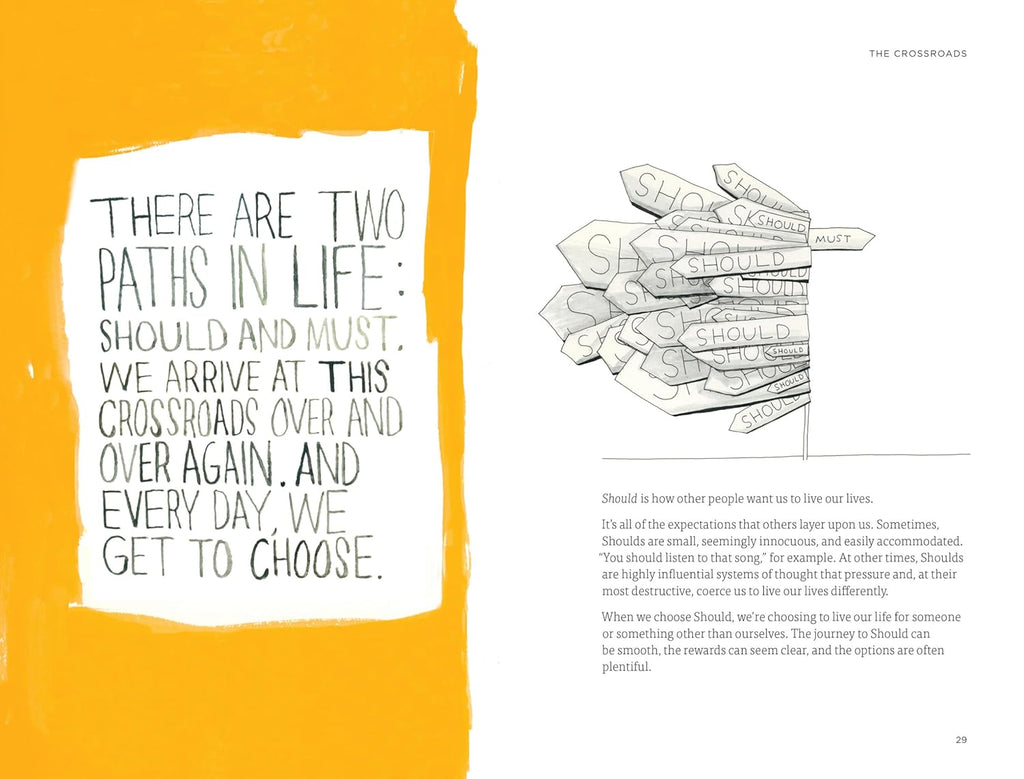 THERE ARE TWO
PATHS IN LIFE:
SHOULD AND MUST.
WE ARRIVE AT THIS
CROSSROADS OVER AND
OVER AGAIN. AND
EVERY DAY, WE
GET TO CHOOSE.
THE CROSSROADS
SHOULD
SHOULD
MUST
SHOULD
SHOULD
SHOULD
SHOULD
SHOULD
SHOULD
SHOULD
Should is how other people want us to live our lives.
It’s all of the expectations that others layer upon us. Sometimes,
Shoulds are small, seemingly innocuous, and easily accommodated.
“You should listen to that song,” for example. At other times, Shoulds
are highly influential systems of thought that pressure and, at their
most destructive, coerce us to live our lives differently.
When we choose Should, we’re choosing to live our life for someone
or something other than ourselves. The journey to Should can
be smooth, the rewards can seem clear, and the options are often
plentiful.
29